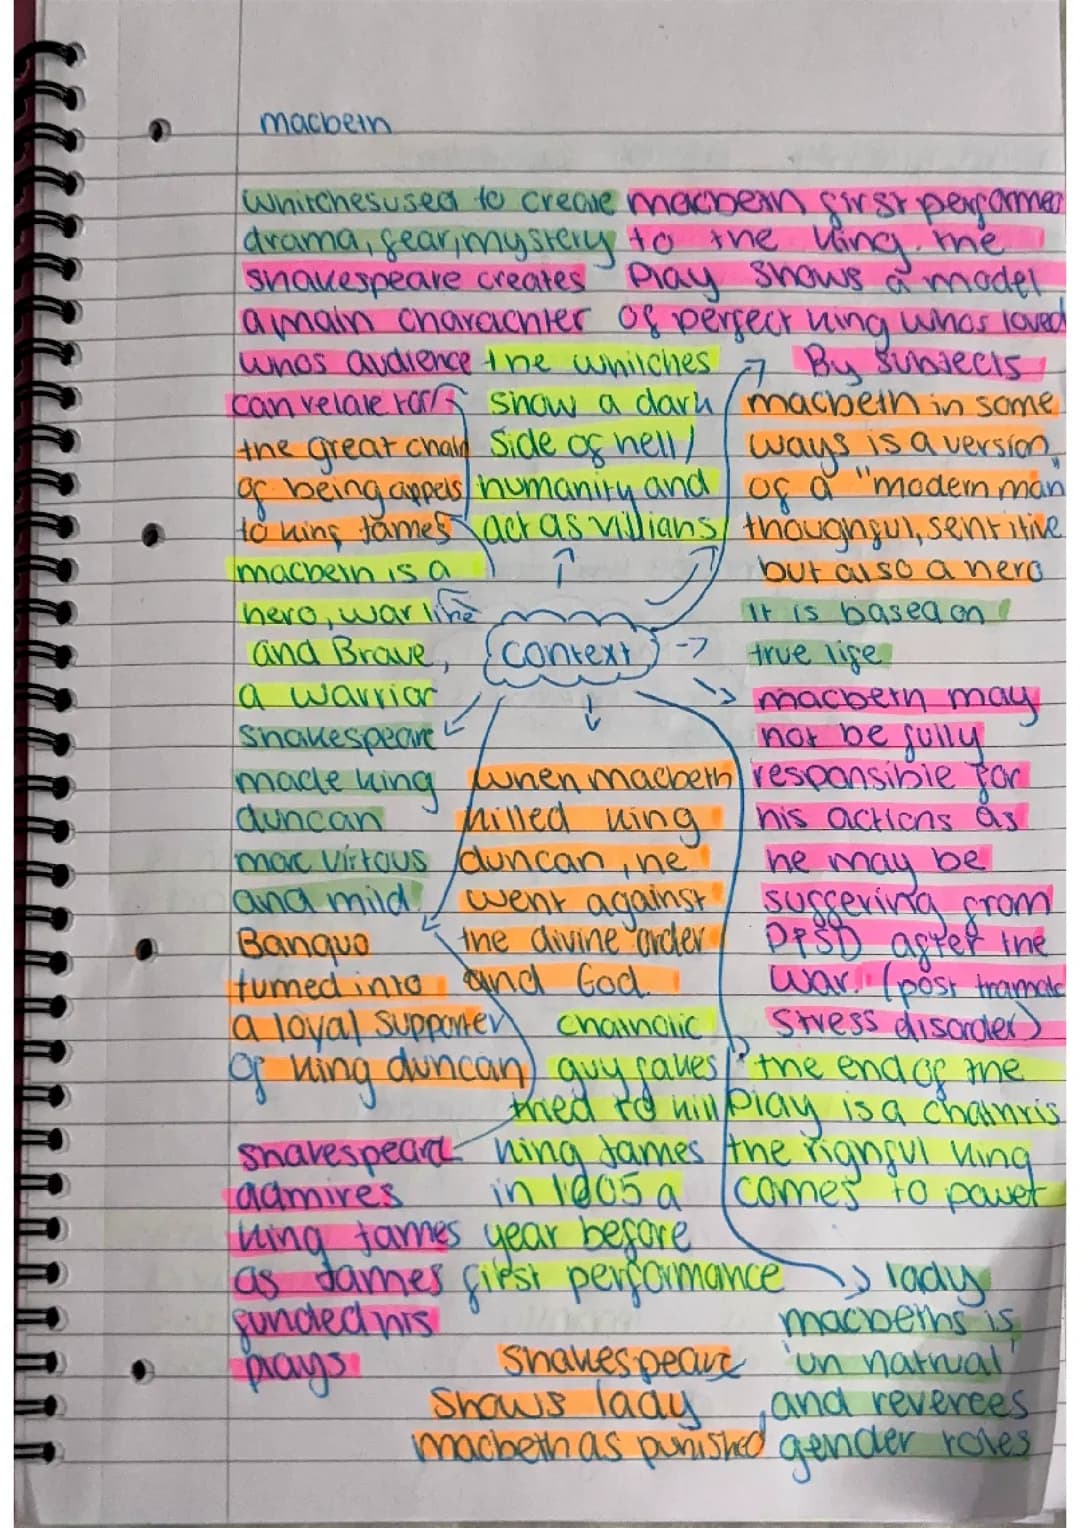 macbeth
whitches used to create
drama, fear, mystery
shakespeare creates
a main charachter
whos audience
can relate to
macbeth first performed
to the king. the
play shows a model
of perfect king whos loved
By subjects
the whitches
show a dark
side of hell/
humanity and
act as villians
macbeth in some
ways is a version
of a "modern man"
thoughful, sentitive
but also a hero
the great chain
of being appels
to king James
macbeth is a
hero, war like
and Brave,
a warrior
context
It is based on
true life
shakespeare
made king
duncan
more virtous
and mild.
when macbeth
killed king
duncan, he
went against
the divine order
and God.
macbeth may
not be fully
responsible for
his actions as
he may be
suffering from
PTSD after the
war. (post tramatic
stress disorder)
Banquo
turned into
a loyal supporter
of king duncan
chatholic
guy fakes
tried to kill
king James
in 1605 a
year before
first performance
the end of the
play is a chathris
the righful king
comes to power
shakespeare
admires
king James
as James
funded his
plays
lady
macbeths is
'un natrual'
and reverees
gender roles
Shakespeare
shows lady
macbeth as punished